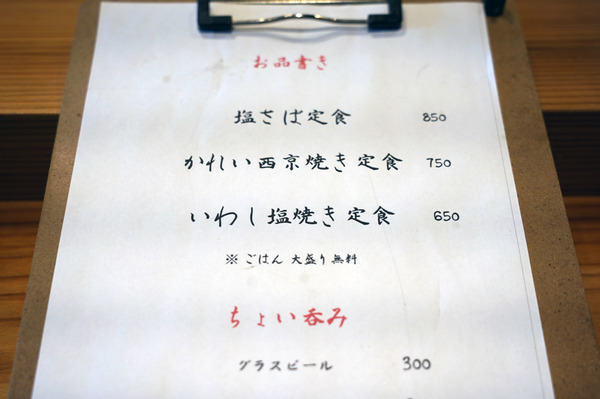 お品書き
塩さば定食 850
かれい西京焼き定食 750
いわし塩焼き定食 650
※ごはん 大盛り無料
ちょい呑み
グラスビール 300